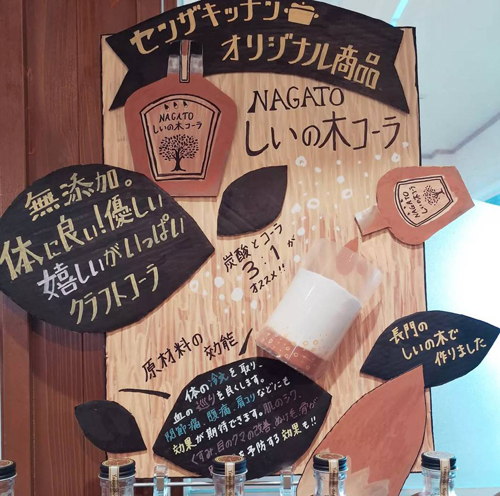 センザキッチン
オリジナル商品
NAGATO
しいの木コーラ
NAGATO
しいの木コーラ
NAGATO
しいの木コーラ
無添加。
体に良い!優しい
嬉しいがいっぱい
クラフトコーラ
炭酸とコーラ
3:1が
オススメ!!
原材料の効能
長門の
しいの木で
作りました
体の冷えを取り、
血の巡りを良くします。
関節痛、腰痛、肩コリなどにも
効果が期待できます。肌のシワ、
くすみ、目のクマの改善、
を予防する効果も!!